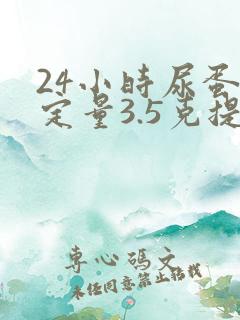 24小時尿蛋
定量3.5克提
專心碼文
未經同意禁止搬栽